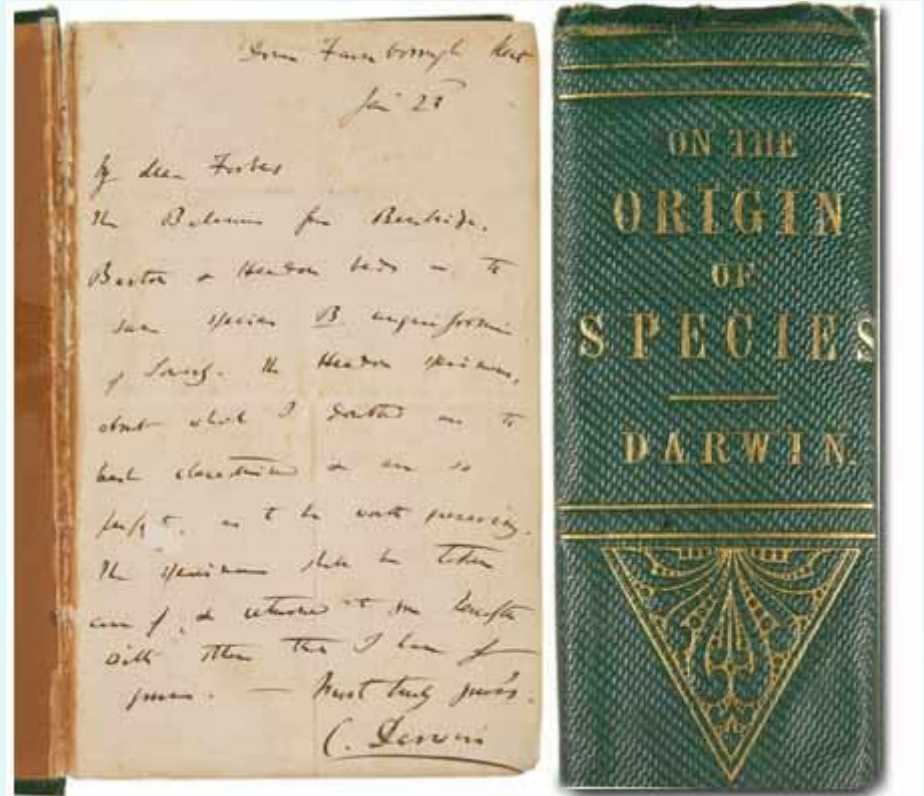 Down Farnborough Kent
Jan 28
My dear Forbes
The Balanus from Bembridge,
Barton & Headon beds is the
same species B unguiformis
of Sowerby. The Headon specimens,
about which I doubted are the
best characterised & are so
perfect, as to be worth preserving.
The specimens shall be taken
care of, & returned to you
with others that I have of
yours. — Most truly yours.
C. Darwin
ON THE
ORIGIN
OF
SPECIES
DARWIN.